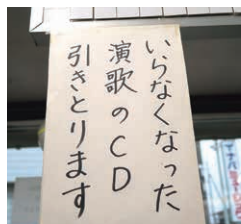 いらなくなった
演歌のCD
引きとります